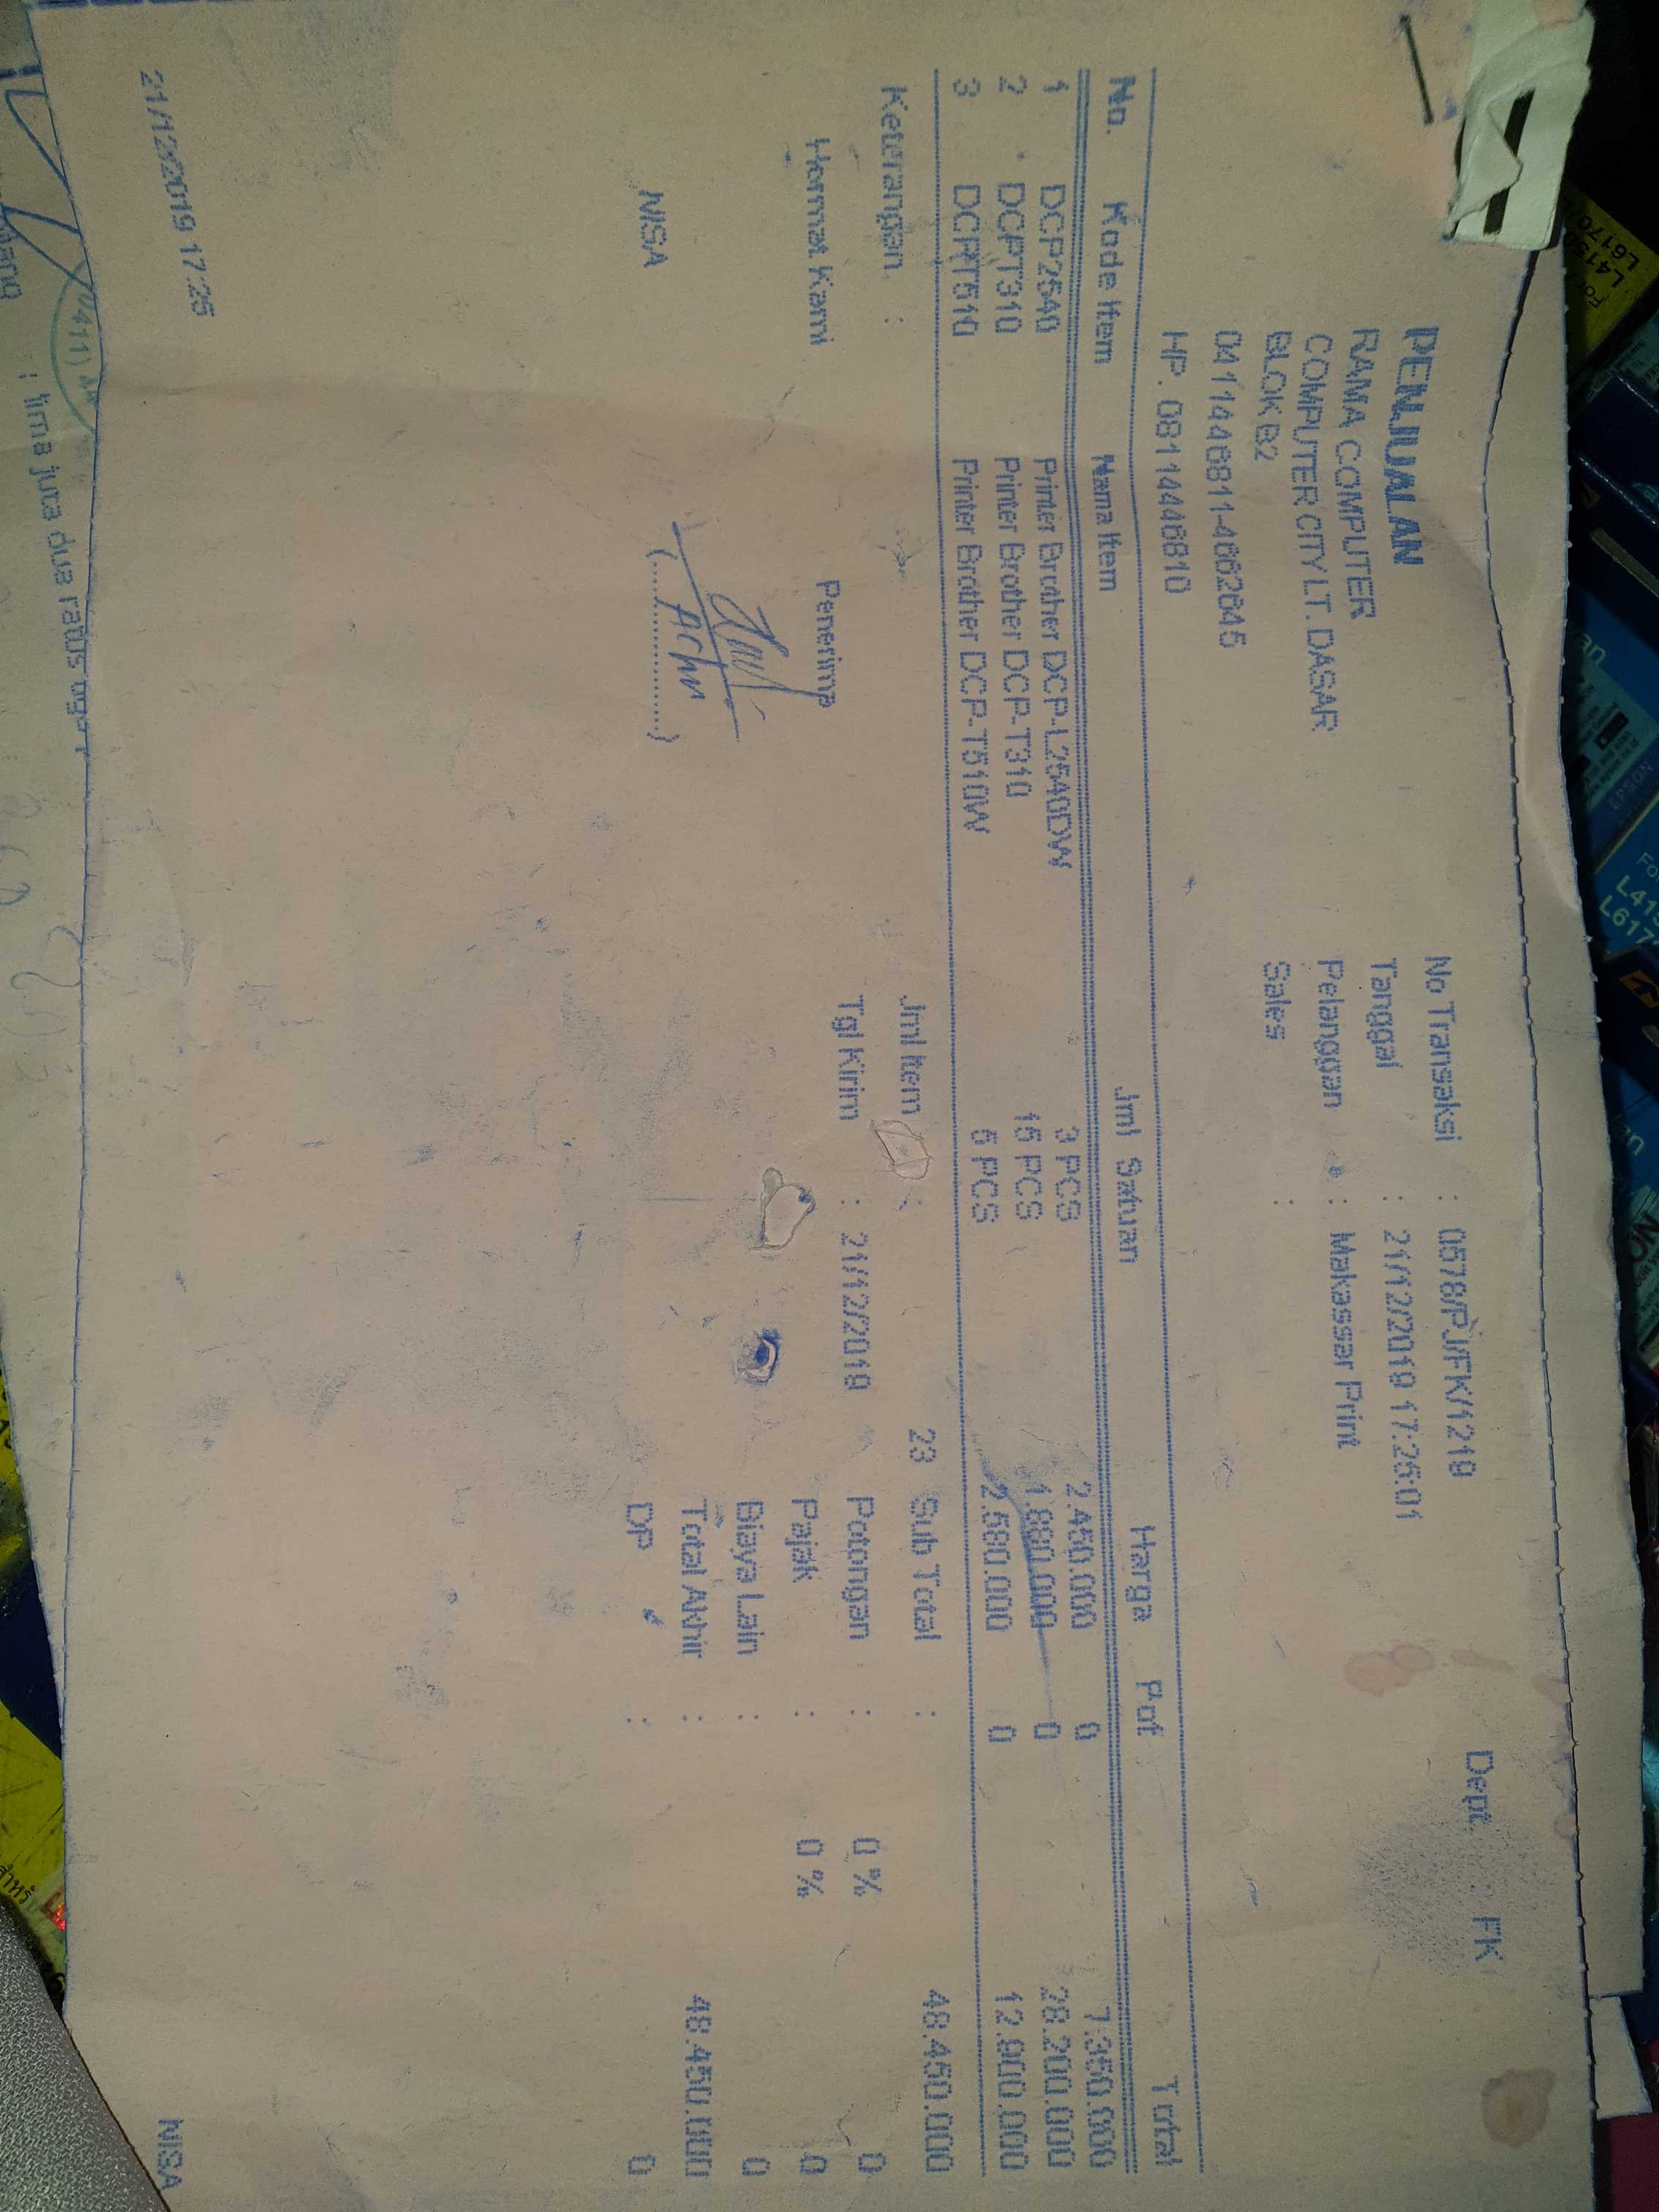 PENJUALAN
RAMA COMPUTER
COMPUTER CITY LT. DASAR
BLOK B2
0411446811-4662645
HP. 08114446810
No Transaksi : 0578/PJ/FK/1219
Tanggal : 21/12/2019 17:25:01
Pelanggan : Makassar Print
Sales :
Dept. : FK
No. Kode Item Nama Item Jml Satuan Harga Pot Total
1 DCP2540 Printer Brother DCP-L2540DW 3 PCS 2.450.000 0 7.350.000
2 DCPT310 Printer Brother DCP-T310 15 PCS 1.880.000 0 28.200.000
3 DCPT510 Printer Brother DCP-T510W 5 PCS 2.580.000 0 12.900.000
Keterangan : Jml Item : 23 Sub Total : 48.450.000
Hormat Kami Penerima Tgl Kirim : 21/12/2019 Potongan : 0 % 0
Pajak : 0 % 0
Biaya Lain : 0
Total Akhir : 48.450.000
NISA (..................) DP : 0
21/12/2019 17:25 NISA
: lima juta dua ratus